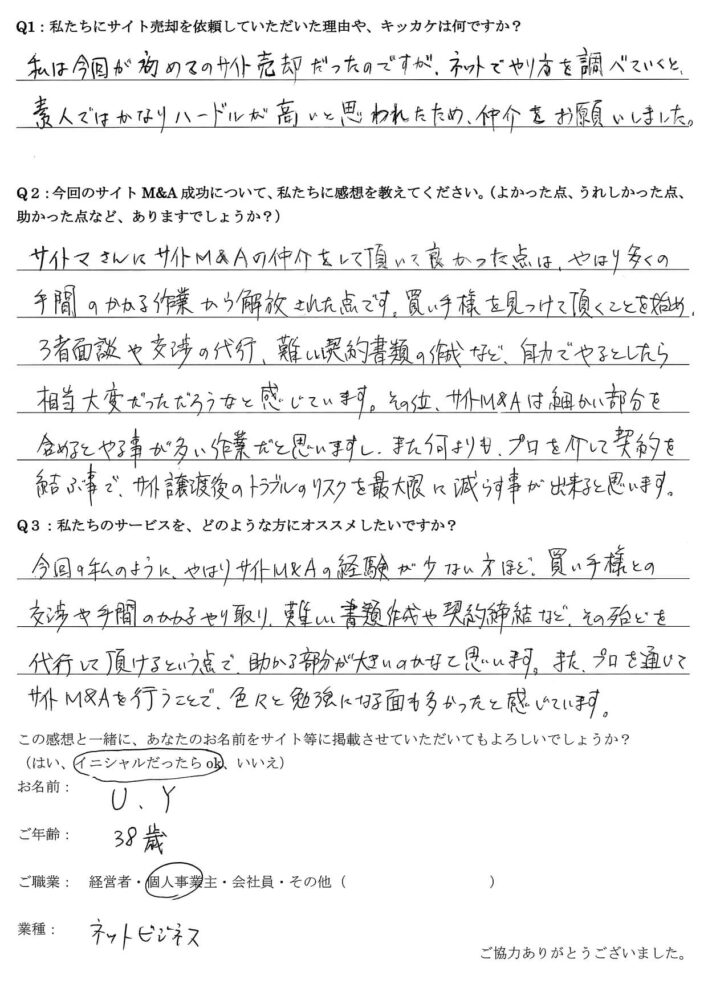 Q1：私たちにサイト売却を依頼していただいた理由や、キッカケは何ですか？
私は今回が初めてのサイト売却だったのですが、ネットでやり方を調べていくと、
素人ではかなりハードルが高いと思われたため、仲介をお願いしました。
Q2：今回のサイトM&A成功について、私たちに感想を教えてください。（よかった点、うれしかった点、
助かった点など、ありますでしょうか？）
サイトマさんにサイトM&Aの仲介をして頂いて良かった点は、やはり多くの
手間のかかる作業から解放された点です。買い手様を見つけて頂くことを始め、
3者面談や交渉の代行、難しい契約書類の作成など、自力でやるとしたら
相当大変だっただろうなと感じています。その位、サイトM&Aは細かい部分を
含めるとやる事が多い作業だと思いますし、また何よりも、プロを介して契約を
結ぶ事で、サイト譲渡後のトラブルのリスクを最大限に減らす事が出来ると思います。
Q3：私たちのサービスを、どのような方にオススメしたいですか？
今回の私のように、やはりサイトM&Aの経験が少ない方ほど、買い手様との
交渉や手間のかかるやり取り、難しい書類作成や契約締結など、その殆どを
代行して頂けるという点で、助かる部分が大きいのかなて思います。また、プロを通じて
サイトM&Aを行うことで、色々と勉強になる面も多かったと感じています。
この感想と一緒に、あなたのお名前をサイト等に掲載させていただいてもよろしいでしょうか？
（はい、イニシャルだったらok、いいえ）
お名前： U、Y
ご年齢： 38歳
ご職業： 経営者・個人事業主・会社員・その他（ ）
業種： ネットビジネス
ご協力ありがとうございました。